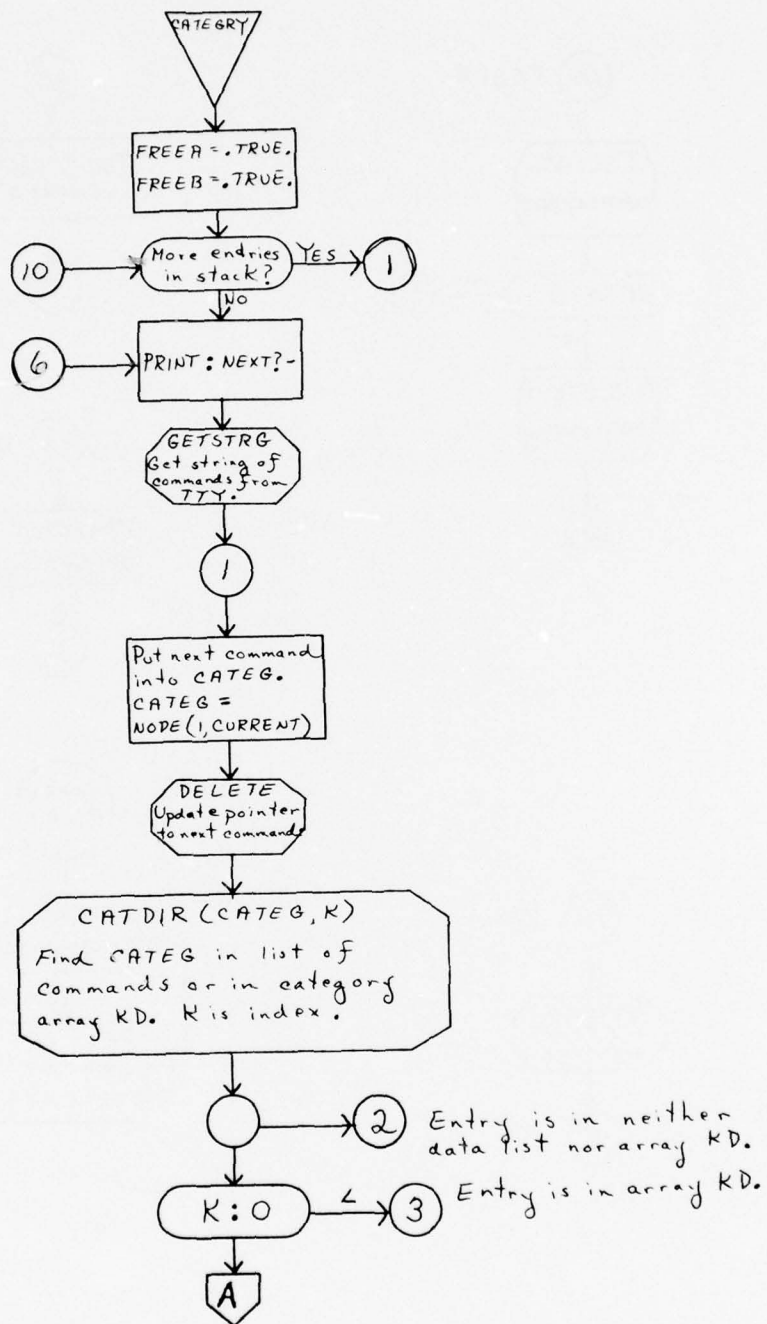 CATEGRY
FREEA = .TRUE.
FREEB = .TRUE.
10
More endries
in stack?
YES
1
NO
6
PRINT: NEXT?-
GETSTRG
Get string of
commands from
TTY.
1
Put next command
into CATEG.
CATEG =
NODE(1,CURRENT)
DELETE
Update pointer
to next command
CATDIR (CATEG, K)
Find CATEG in list of
commands or in category
array KD. K is index.
2
Entry is in neither
data list nor array KD.
K : 0
<
3
Entry is in array KD.
A